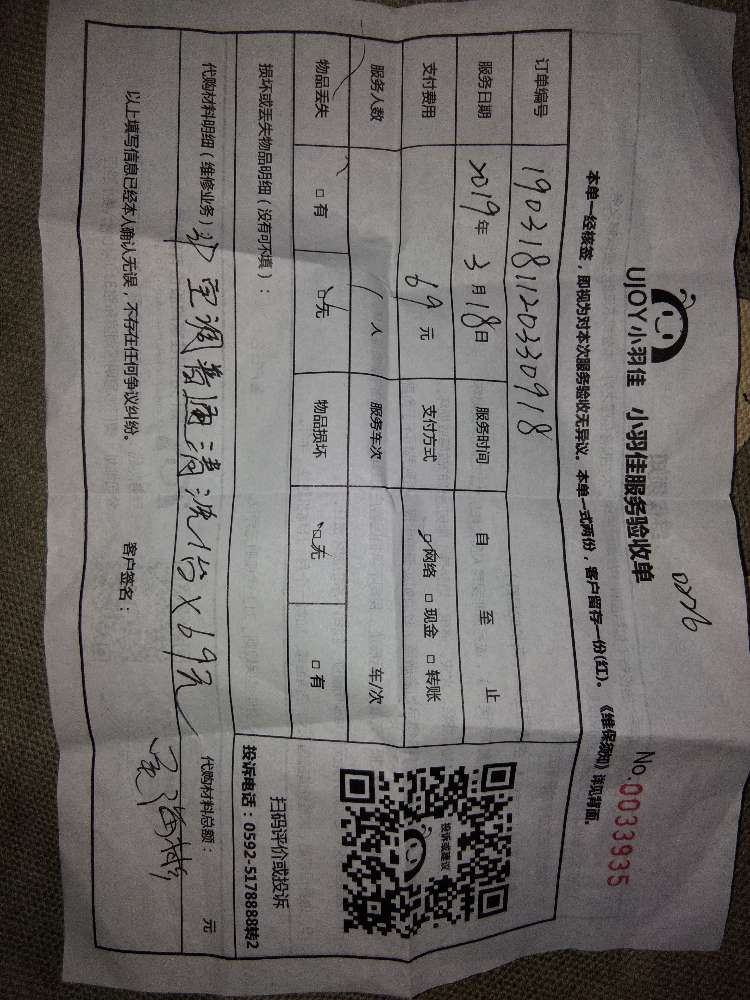 0276
UJOY小羽佳 小羽佳服务验收单 No.0033935
本单一经核签，即视为对本次服务验收无异议。本单一式两份，客户留存一份(红)。《维保须知》详见背面。
订单编号 1903181120330918
服务日期 2019年3月18日 服务时间 自 至 止
支付费用 69元 支付方式 □网络 □现金 □转账
服务人数 1人 服务车次 车/次
物品丢失 □有 □无 物品损坏 □无 □有
投诉或建议
扫码评价或投诉
投诉电话：0592-5178888转2
损坏或丢失物品明细（没有可不填）：
代购材料明细（维修业务）： 空调普通清洗1台×69元 代购材料总额： 元
以上填写信息已经本人确认无误，不存在任何争议纠纷。 客户签名：